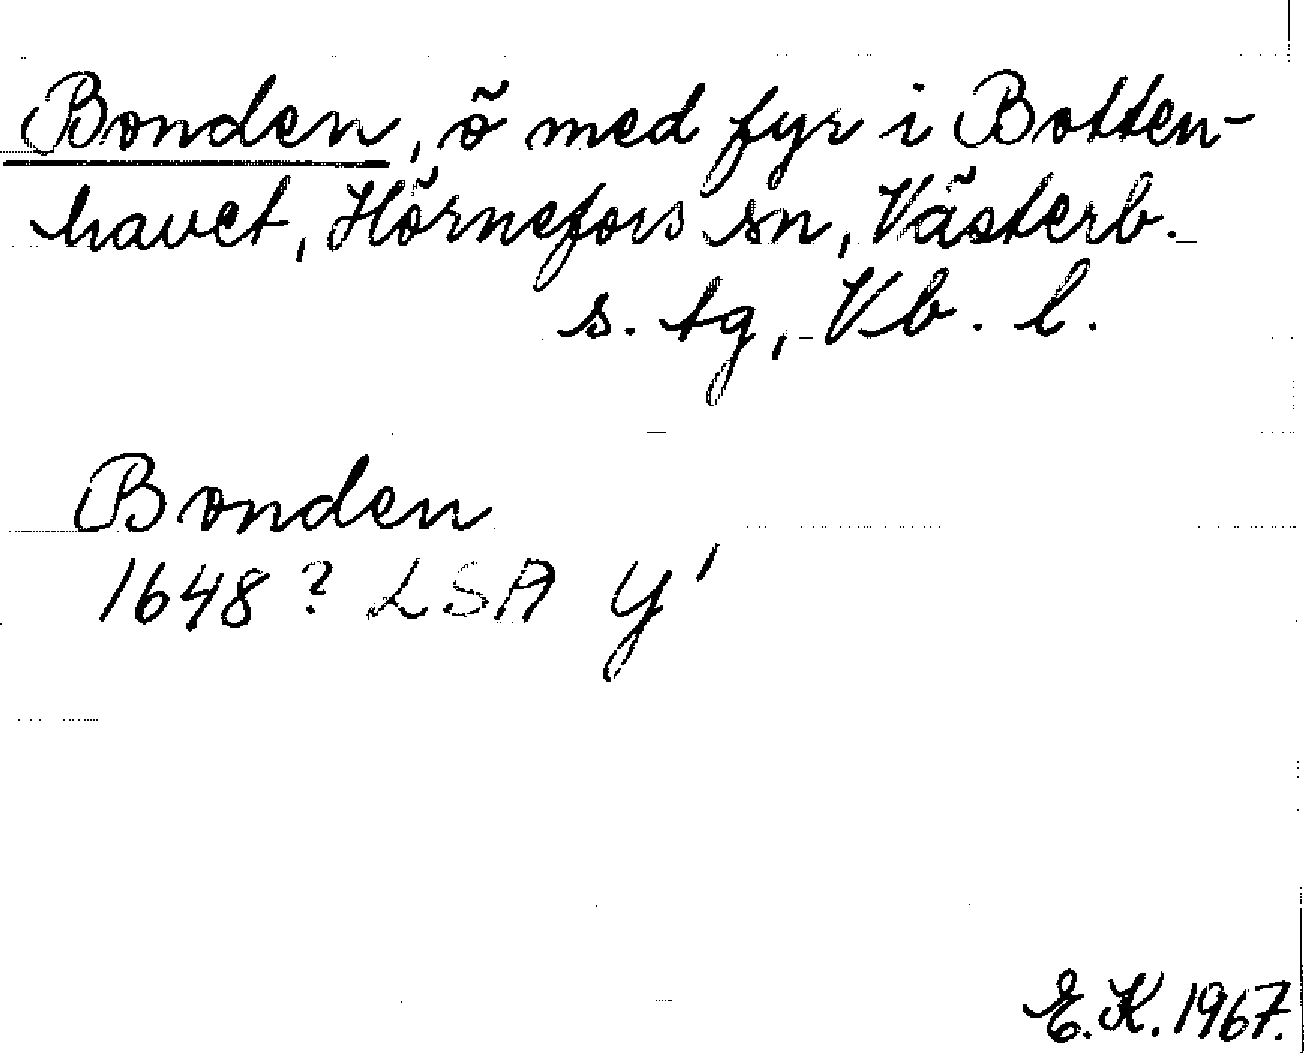 Bonden, ö med fyr i Botten-
havet, Hörnefors sn, Västerb.
s. tg, Vb. l.
Bonden
1648? LSA Y'
E.K. 1967.